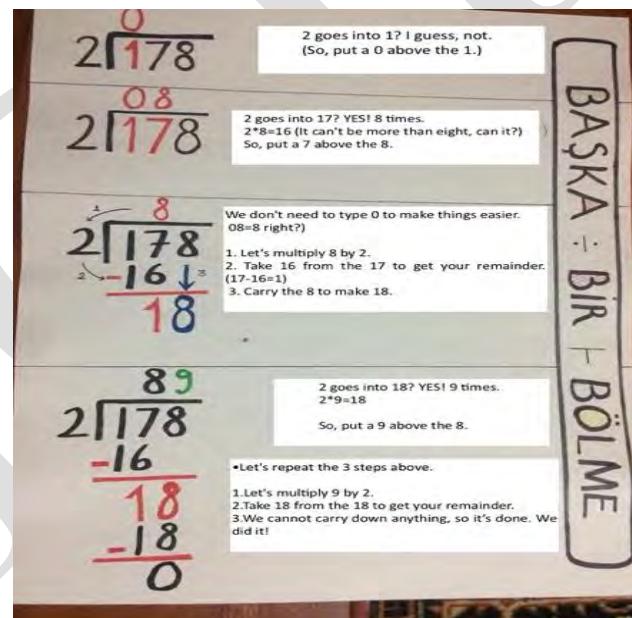 0
2 178
2 goes into 1? I guess, not.
(So, put a 0 above the 1.)
08
2 178
2 goes into 17? YES! 8 times.
2*8=16 (It can't be more than eight, can it?)
So, put a 7 above the 8.
1 8
2 178
2 -16 3
18
We don't need to type 0 to make things easier.
08=8 right?)
1. Let's multiply 8 by 2.
2. Take 16 from the 17 to get your remainder.
(17-16=1)
3. Carry the 8 to make 18.
89
2 178
-16
18
-18
0
2 goes into 18? YES! 9 times.
2*9=18
So, put a 9 above the 8.
•Let's repeat the 3 steps above.
1.Let's multiply 9 by 2.
2.Take 18 from the 18 to get your remainder.
3.We cannot carry down anything, so it's done. We
did it!
BAŞKA ÷ BİR ÷ BÖLME